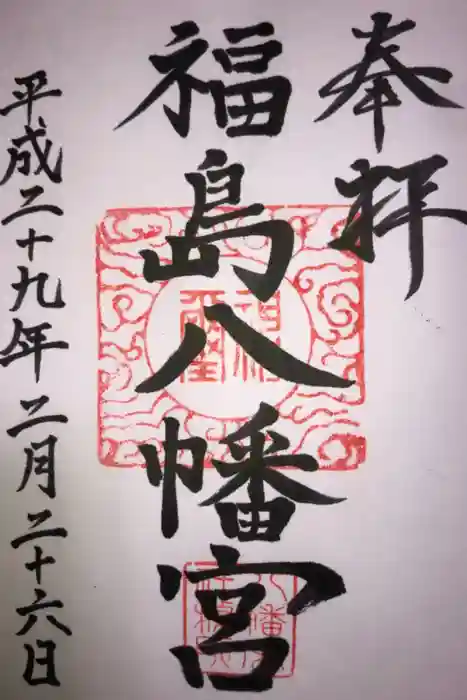 奉拝
福島八幡宮
平成二十九年二月二十六日